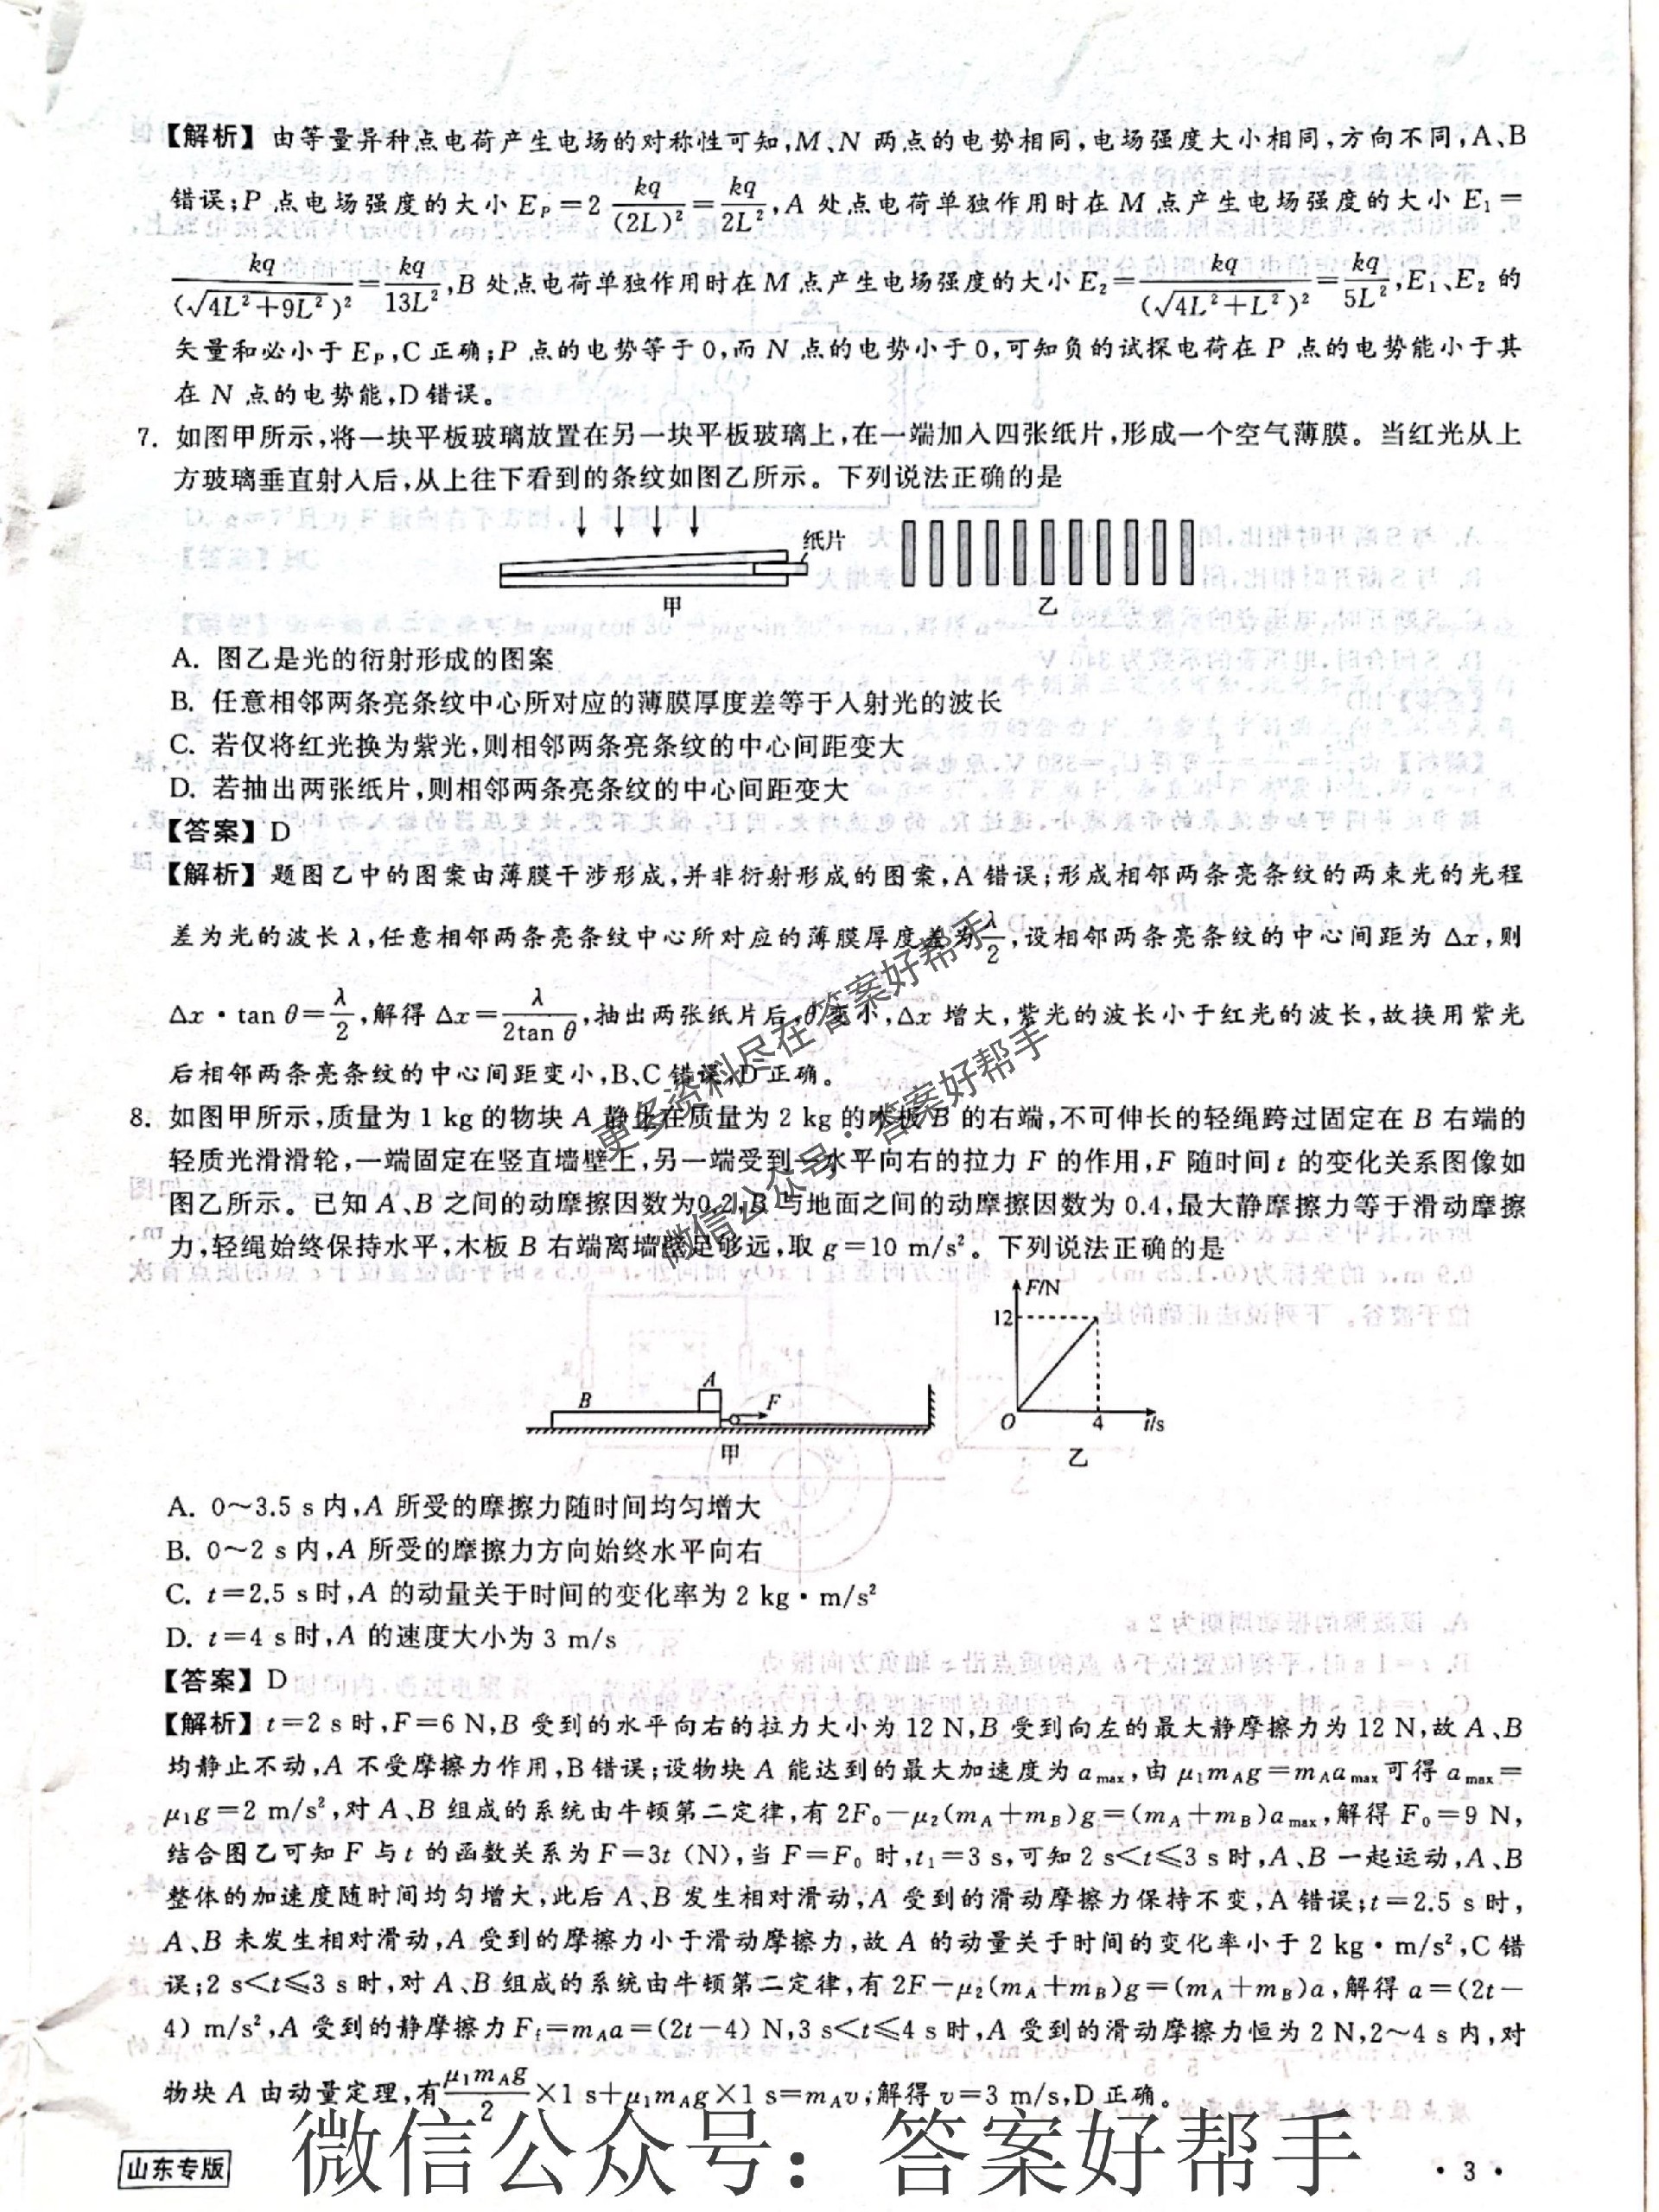 【解析】由等量异种点电荷产生电场的对称性可知,M、N 两点的电势相同,电场强度大小相同,方向不同,A、B
错误;P 点电场强度的大小 E_P=2 kq/(2L)²=kq/2L²,A 处点电荷单独作用时在 M 点产生电场强度的大小 E₁=
kq/(√4L²+9L²)²=kq/13L²,B 处点电荷单独作用时在 M 点产生电场强度的大小 E₂=kq/(√4L²+L²)²=kq/5L²,E₁、E₂ 的
矢量和必小于 E_P,C 正确;P 点的电势等于 0,而 N 点的电势小于 0,可知负的试探电荷在 P 点的电势能小于其
在 N 点的电势能,D 错误。
7. 如图甲所示,将一块平板玻璃放置在另一块平板玻璃上,在一端加入四张纸片,形成一个空气薄膜。当红光从上
方玻璃垂直射入后,从上往下看到的条纹如图乙所示。下列说法正确的是
纸片
甲
乙
A. 图乙是光的衍射形成的图案
B. 任意相邻两条亮条纹中心所对应的薄膜厚度差等于入射光的波长
C. 若仅将红光换为紫光,则相邻两条亮条纹的中心间距变大
D. 若抽出两张纸片,则相邻两条亮条纹的中心间距变大
【答案】D
【解析】题图乙中的图案由薄膜干涉形成,并非衍射形成的图案,A 错误;形成相邻两条亮条纹的两束光的光程
差为光的波长 λ,任意相邻两条亮条纹中心所对应的薄膜厚度差为 λ/2,设相邻两条亮条纹的中心间距为 Δx,则
Δx·tan θ=λ/2,解得 Δx=λ/2tan θ,抽出两张纸片后,θ 变小,Δx 增大,紫光的波长小于红光的波长,故换用紫光
后相邻两条亮条纹的中心间距变小,B、C 错误,D 正确。
8. 如图甲所示,质量为 1 kg 的物块 A 静止在质量为 2 kg 的木板 B 的右端,不可伸长的轻绳跨过固定在 B 右端的
轻质光滑滑轮,一端固定在竖直墙壁上,另一端受到一水平向右的拉力 F 的作用,F 随时间 t 的变化关系图像如
图乙所示。已知 A、B 之间的动摩擦因数为0.2,B 与地面之间的动摩擦因数为 0.4,最大静摩擦力等于滑动摩擦
力,轻绳始终保持水平,木板 B 右端离墙壁足够远,取 g=10 m/s²。下列说法正确的是
B
A
F
甲
F/N
12
O
4
t/s
乙
A. 0~3.5 s 内,A 所受的摩擦力随时间均匀增大
B. 0~2 s 内,A 所受的摩擦力方向始终水平向右
C. t=2.5 s 时,A 的动量关于时间的变化率为 2 kg·m/s²
D. t=4 s 时,A 的速度大小为 3 m/s
【答案】D
【解析】t=2 s 时,F=6 N,B 受到的水平向右的拉力大小为 12 N,B 受到向左的最大静摩擦力为 12 N,故 A、B
均静止不动,A 不受摩擦力作用,B 错误;设物块 A 能达到的最大加速度为 a_max,由 μ₁m_Ag=m_Aa_max 可得 a_max=
μ₁g=2 m/s²,对 A、B 组成的系统由牛顿第二定律,有 2F₀−μ₂(m_A+m_B)g=(m_A+m_B)a_max,解得 F₀=9 N,
结合图乙可知 F 与 t 的函数关系为 F=3t (N),当 F=F₀ 时,t₁=3 s,可知 2 s<t≤3 s 时,A、B 一起运动,A、B
整体的加速度随时间均匀增大,此后 A、B 发生相对滑动,A 受到的滑动摩擦力保持不变,A 错误;t=2.5 s 时,
A、B 未发生相对滑动,A 受到的摩擦力小于滑动摩擦力,故 A 的动量关于时间的变化率小于 2 kg·m/s²,C 错
误;2 s<t≤3 s 时,对 A、B 组成的系统由牛顿第二定律,有 2F−μ₂(m_A+m_B)g=(m_A+m_B)a,解得 a=(2t−
4) m/s²,A 受到的静摩擦力 F_f=m_Aa=(2t−4) N,3 s<t≤4 s 时,A 受到的滑动摩擦力恒为 2 N,2~4 s 内,对
物块 A 由动量定理,有 μ₁m_Ag/2×1 s+μ₁m_Ag×1 s=m_Av,解得 v=3 m/s,D 正确。
更多资料尽在答案好帮手
微信公众号:答案好帮手
微信公众号:答案好帮手
山东专版
·3·